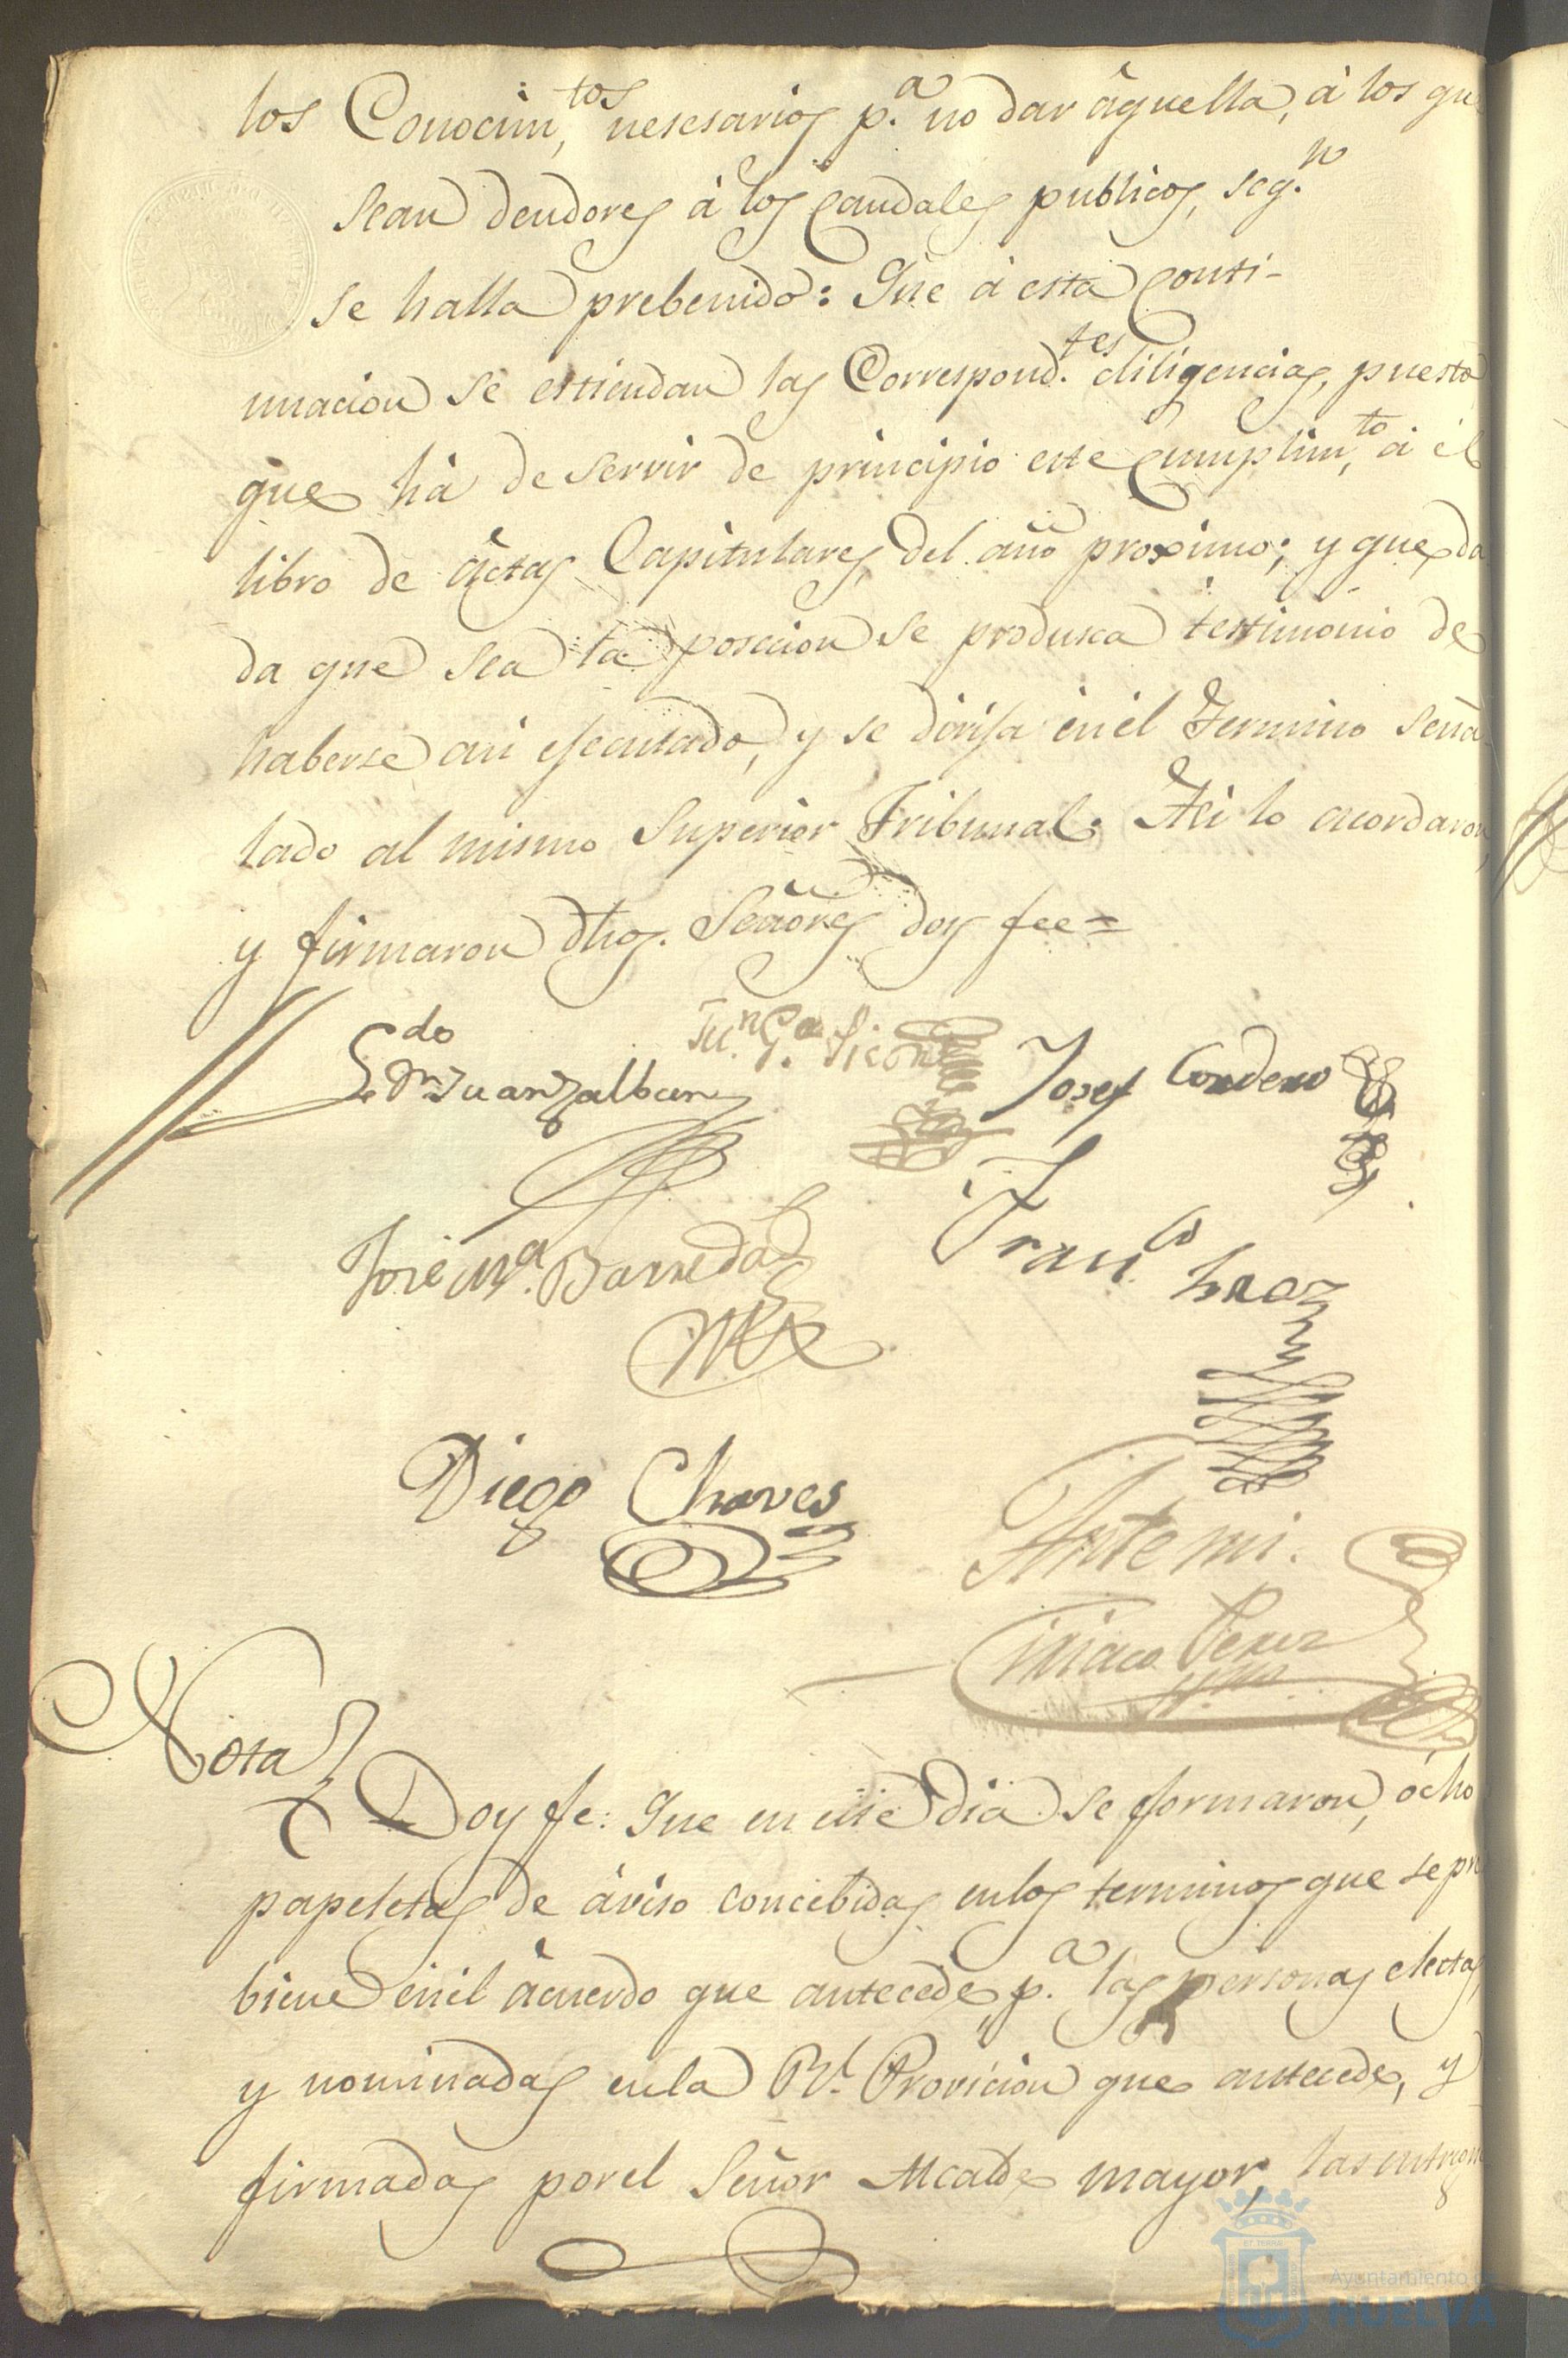 los Conocim,tos nesesarios p.a no dar âquella, à los que
sean deudores à los Caudales publicos, seg.n
se halla prebenido: Que à esta Conti-
nuacion se estiendan las Correspond.tes diligencias, puesto
que hà de servir de principio este Cumplim,to à èl
libro de âctas Capitulares, del año proximo; y que da
da que sea la poscicion se produsca testimonio de
haberse asi ejecutado, y se dirija en èl Termino seña
lado al mismo Superior Tribunal: Asi lo acordaron,
y firmaron dhos. Señores doy fee=
Ldo dn Juan Zalban
Ju.n G.a
Josef Cordero
Jose Ma. Barreda
Fran.co
Diego Chaves
Ante mi.
Ciriaco Perez
Nota
Doy fe: Que en este dia se formaron, ôcho
papeletas de âviso concebidas en los terminos que se pre
biene en el âcuerdo que antecede p.a las personas electas,
y nominadas en la Rl. Provicion que antecede, y
firmadas por el Señor Alcalde mayor, las entregue
Ayuntamiento de
HUELVA